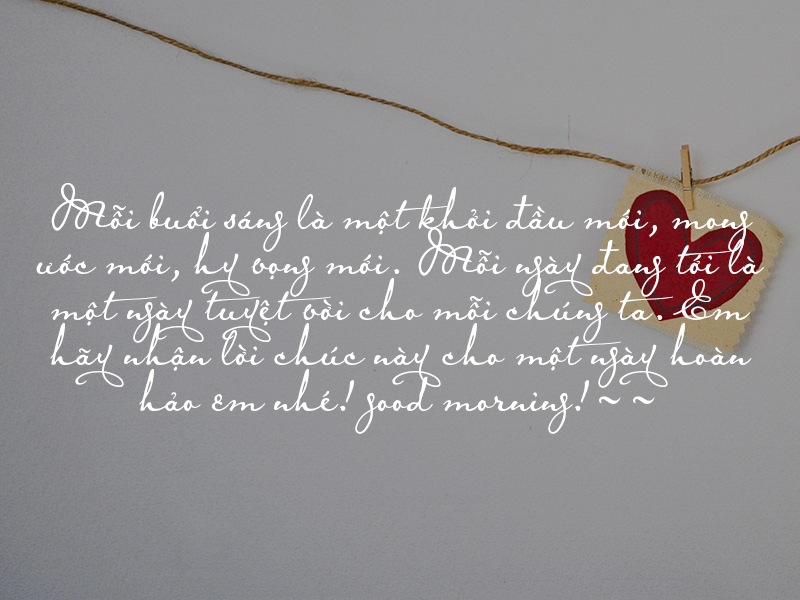 Mỗi buổi sáng là một khỏi đầu mới, mong
ước mới, hy vọng mới. Mỗi ngày đang tới là
một ngày tuyệt vời cho mỗi chúng ta. Em
hãy nhận lời chúc này cho một ngày hoàn
hảo em nhé! good morning! ~ ~